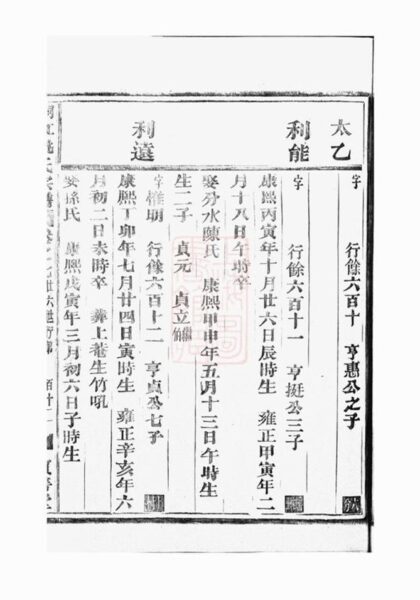 太乙
字 行餘六百十 亨惠公之子
利能
字 行餘六百十一 亨挺公三子
康熙丙寅年十月廿六日辰時生 雍正甲寅年二
月十八日午時卒
娶分水陳氏 康熙甲申年五月十三日午時生
生二子 貞元 貞立繼
利遠
字 惟明 行餘六百十二 亨貞公七子
康熙丁卯年七月廿四日寅時生 雍正辛亥年六
月初二日未時卒 葬上菴生竹吼
娶孫氏 康熙戊寅年三月初六日子時生